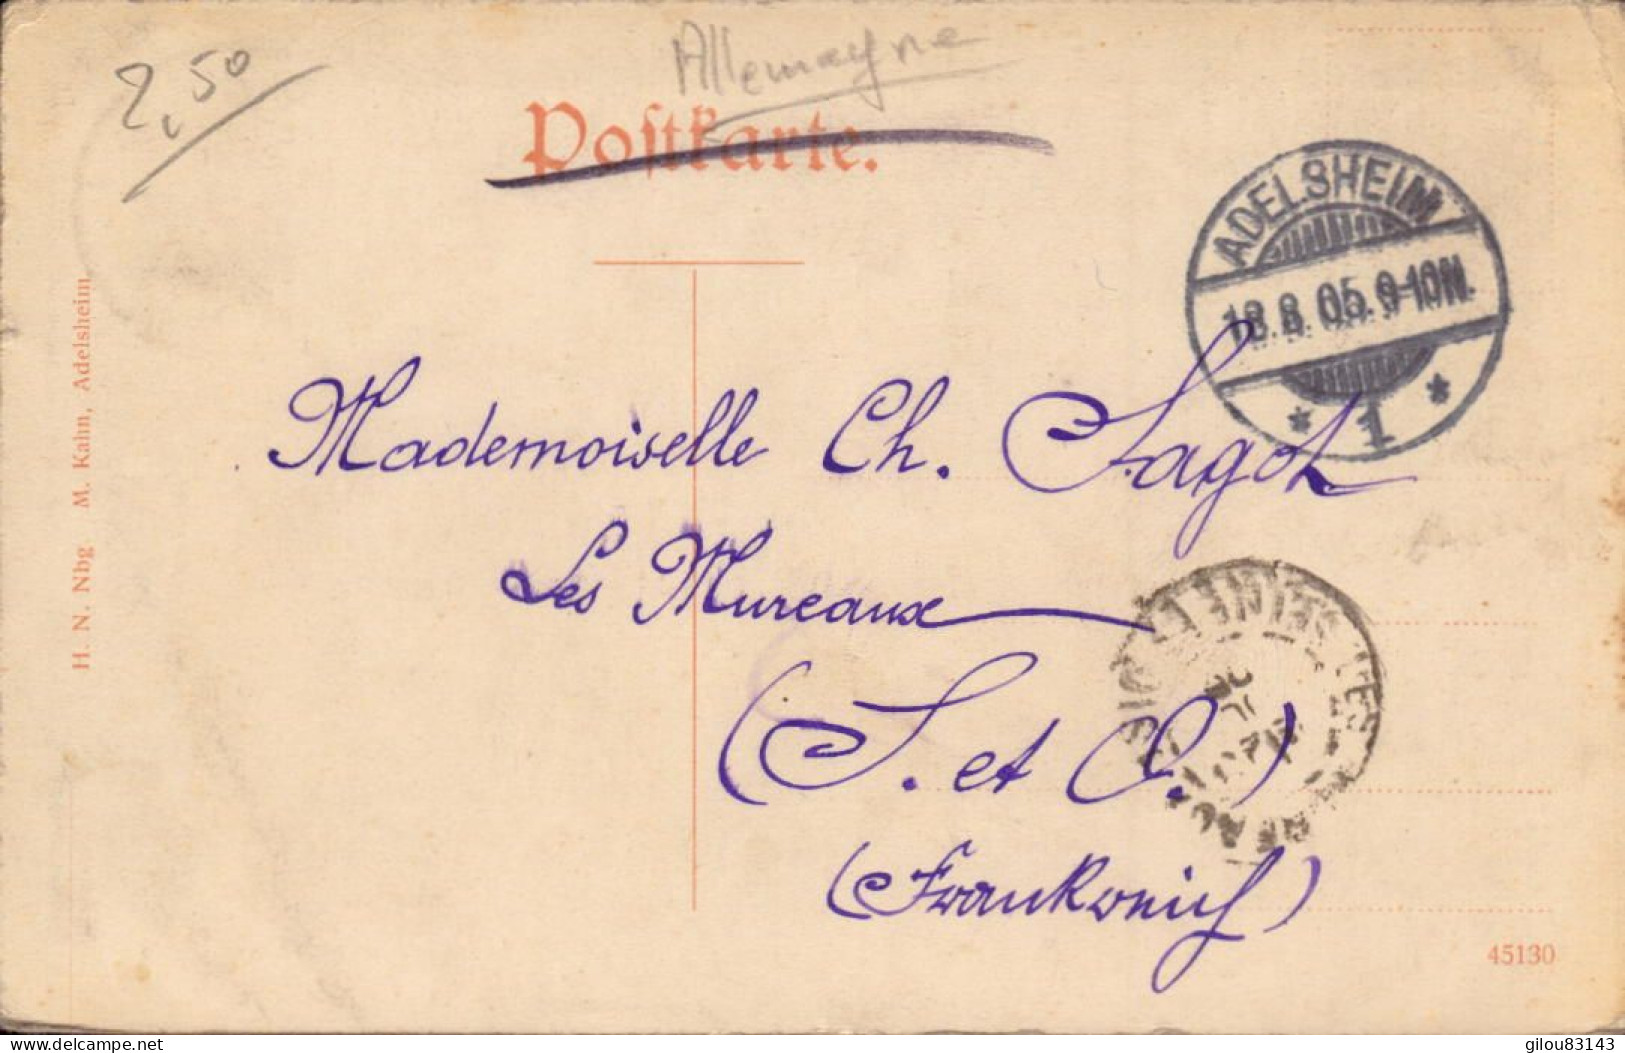 2,50
Allemagne
Postkarte.
ADELSHEIM
18.8.05.9-10N.
* 1 *
H. N. Nbg M. Kahn, Adelsheim
Mademoiselle Ch. Sagot
Les Mureaux
(S. et O.)
(Frankreich)
45130
delcampe.net
gilou83143